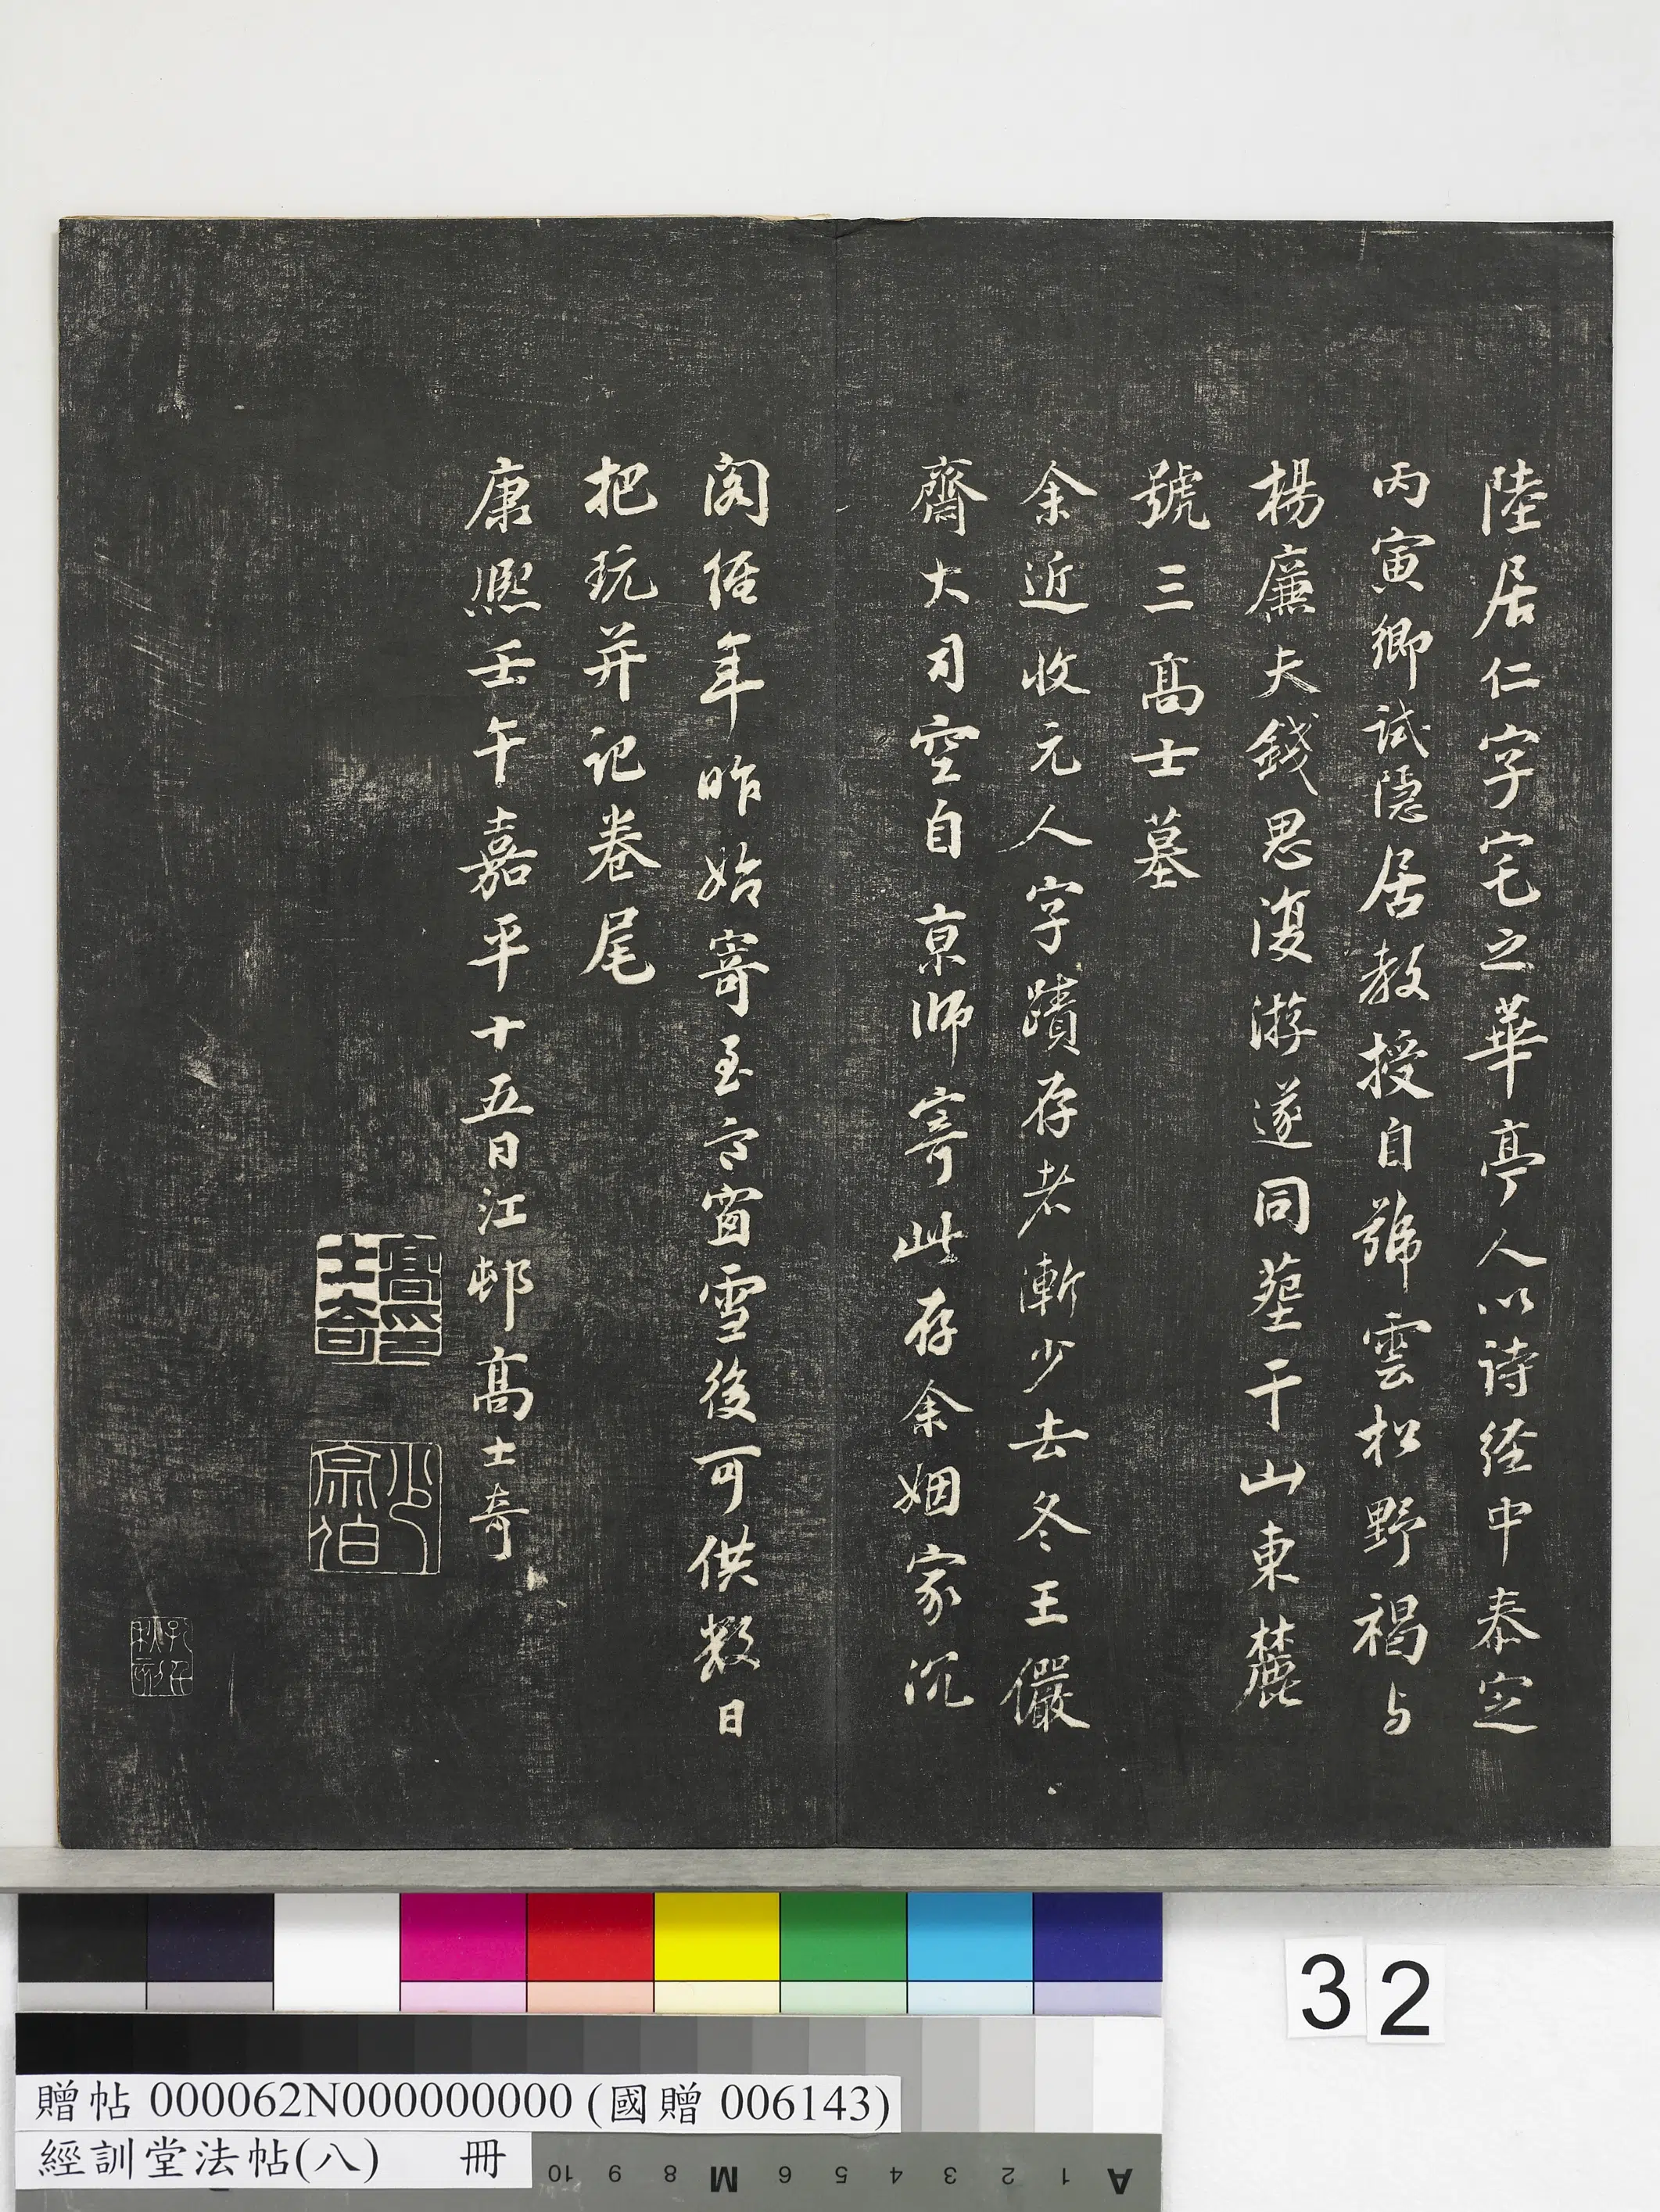 陸居仁字宅之華亭人以詩經中泰定
丙寅鄉試隱居教授自號雲松野褐与
楊廉夫錢思復游遂同塟干山東麓
號三高士墓
余近收元人字蹟存者漸少去冬王儼
齋大司空自京師寄此存余姻家沉
閣經年昨始寄至六窗雪後可供數日
把玩并記卷尾
康熙壬午嘉平十五日江邨高士奇
高士奇印
少宗伯
32
贈帖 000062N000000000 (國贈 006143)
經訓堂法帖(八) 冊
10 9 8 M 6 5 4 3 2 1 A